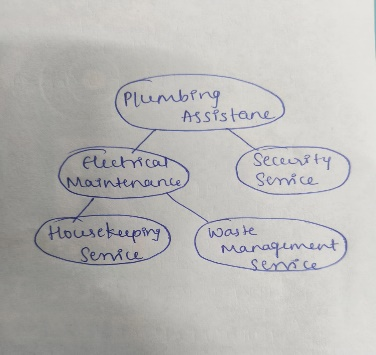 Plumbing
Assistane
Electrical
Maintenance
Security
Service
Housekeeping
Service
Waste
Management
Service